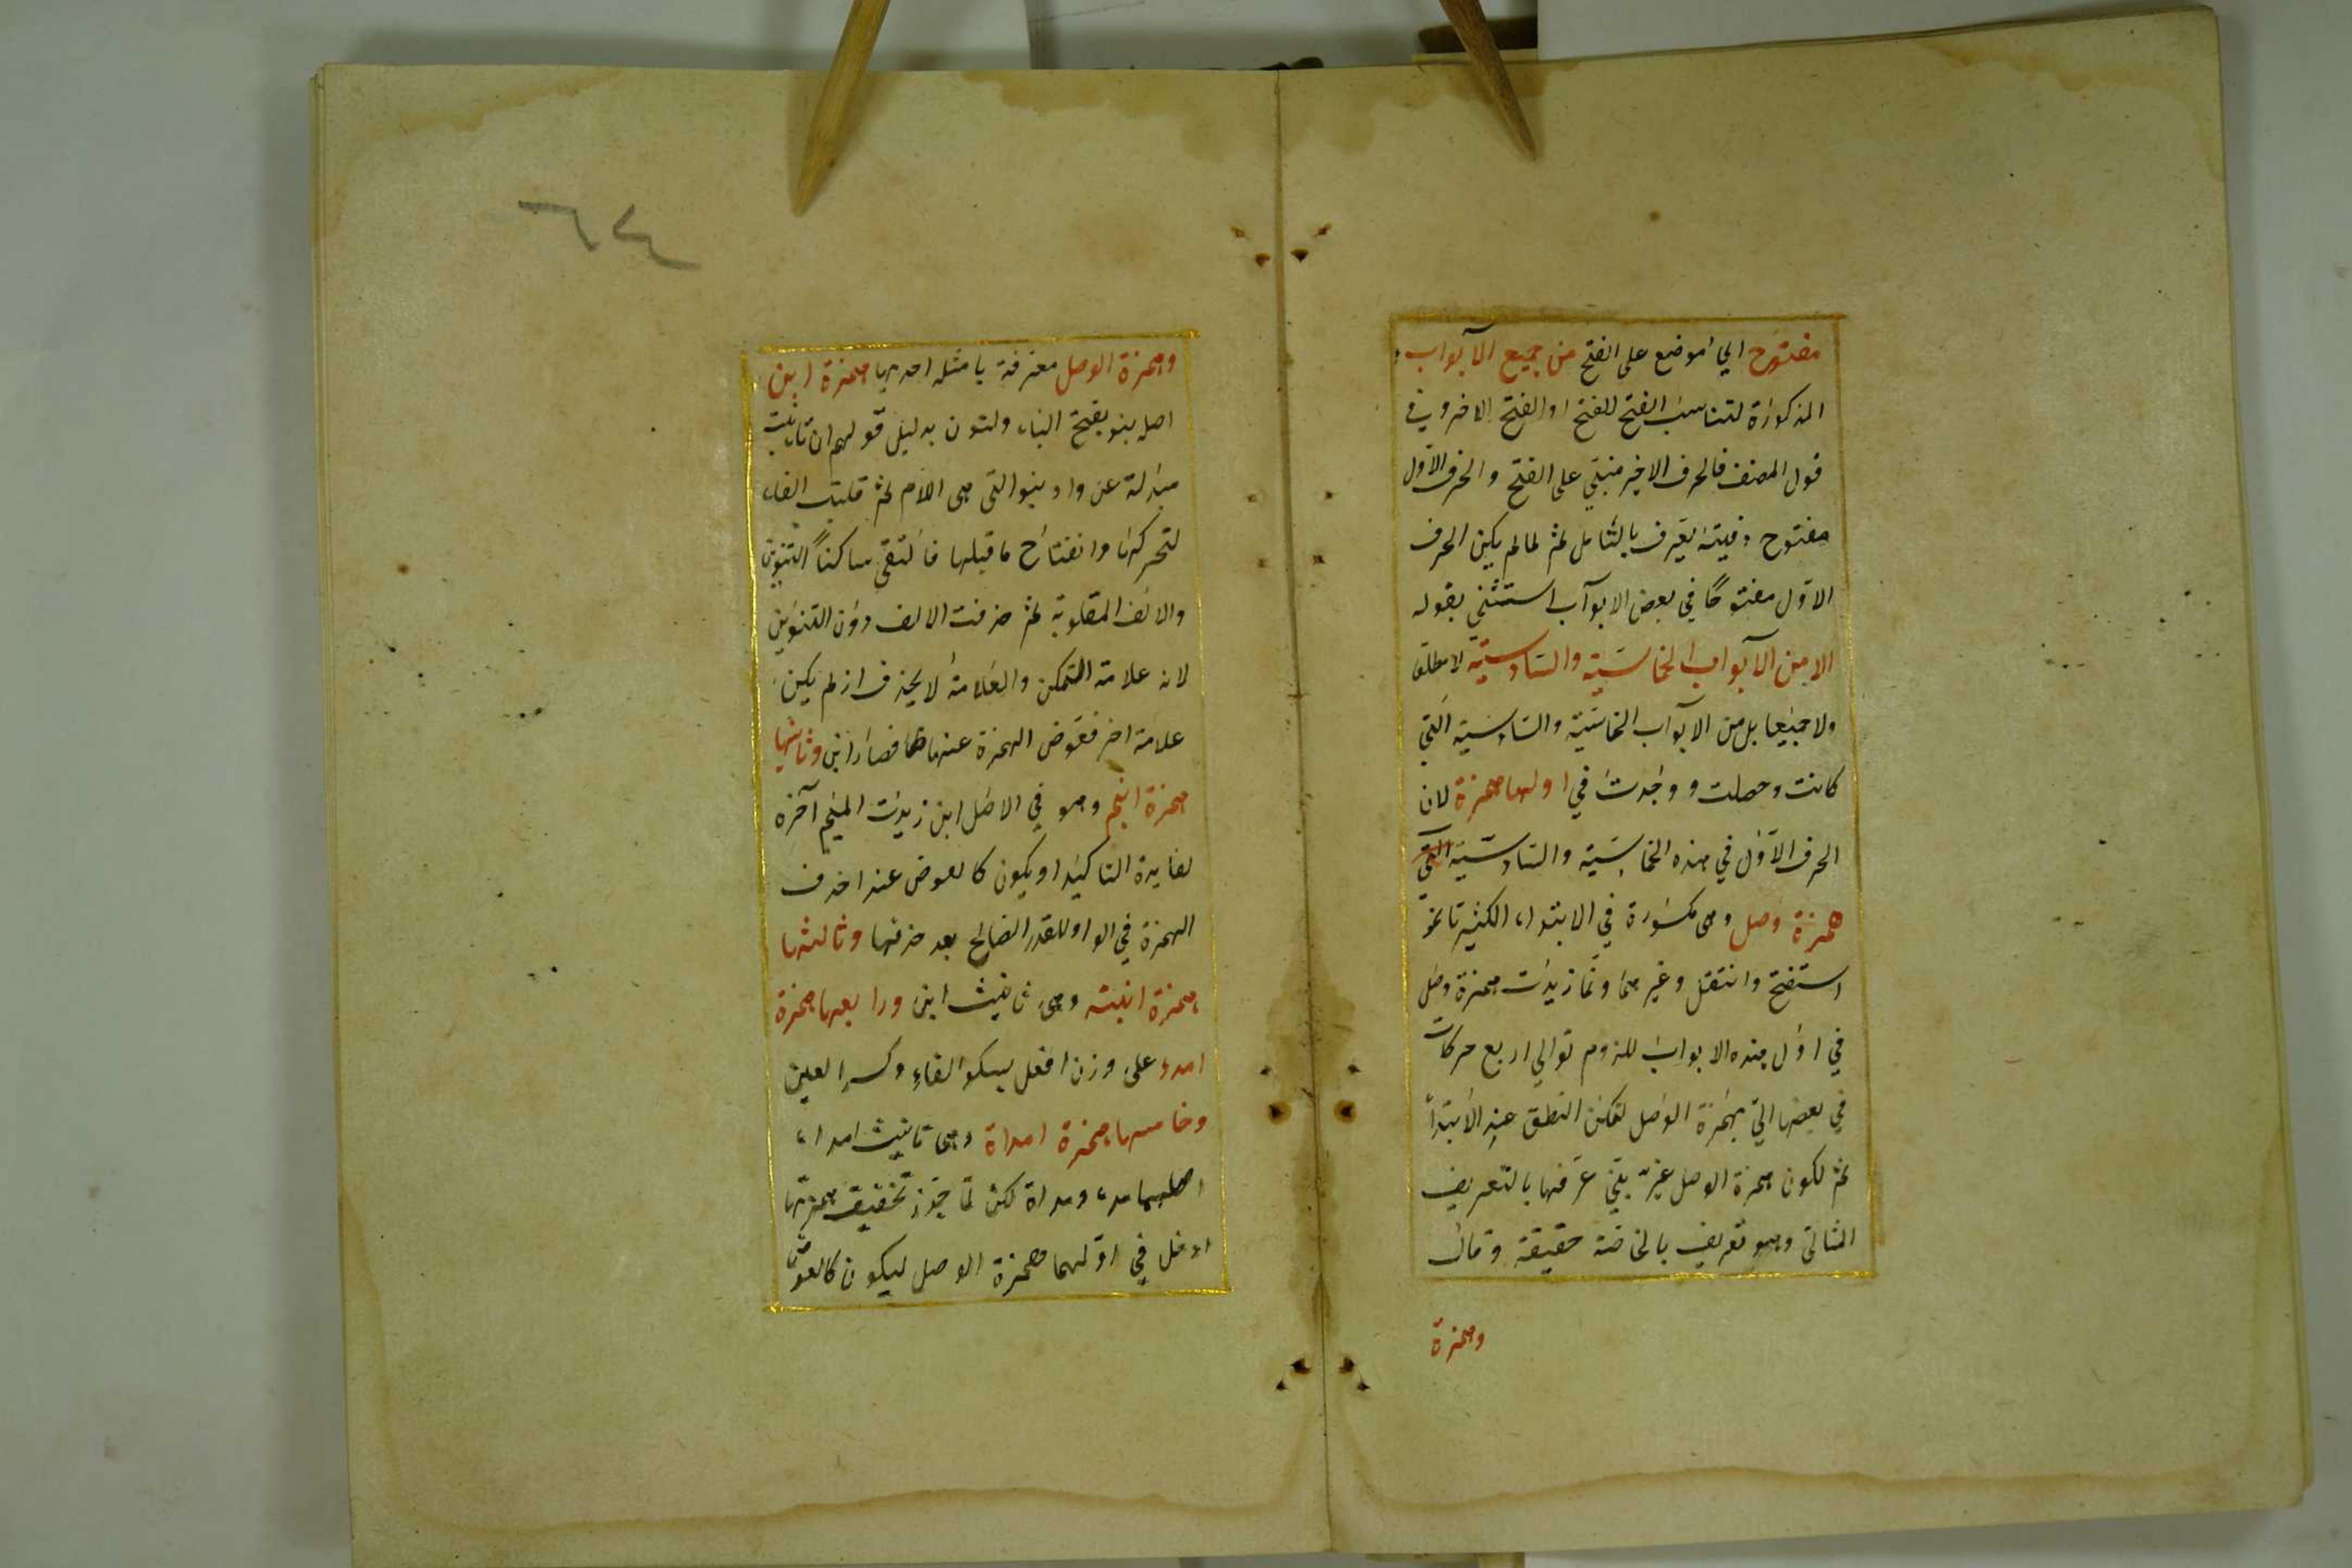 مفتوح اي موضع على الفتح من جميع الآبواب
المذكورة لتناسب الفتح للفتح او الفتح الاخر وفي
قول المصنف فالحرف الاخير مبني على الفتح والحرف الاول
مفتوح دقيقة يعرف بالتأمل ثم لما لم يكن الحرف
الاول مفتوحًا في بعض الابواب استثنى بقوله
الا من الآبواب الخماسية والسداسية لا مطلقا
ولا جميعا بل من الابواب الخماسية والسداسية التي
كانت وحصلت و وجدت في اولها همزة لان
الحرف الاول في هذه الخماسية والسداسية التي
همزة وصل وهي مكسورة في الابتداء الكثير تا نحو
استفتح وانتقل وغيرهما وانما زيدت همزة وصل
في اول هذه الابواب للزوم توالي اربع حركات
في بعضها اتي بهمزة الوصل لتمكن النطق عند الابتداء
ثم لكون همزة الوصل غير عرفها بالتعريف
المثالي وهو تعريف بالخاصة حقيقة وقال
وهمزة
٦٤
وهمزة الوصل معترفة بامثلة احديها همزة ابن
اصله بنو بفتح الباء ولنون بدليل قولهم ان تاء بنت
مبدلة عن واو بنو التي هي اللام ثم قلبت الفاء
لتحركها وانفتاح ما قبلها فالتقى ساكناً التنوين
والالف المقلوبة ثم حذفت الالف دون التنوين
لانه علامة التمكن والعلامة لا يحذف اذ لم يكن
علامة اخر فعوض الهمزة عنها فصار ابن وثانيها
همزة ابنم وهو في الاصل ابن زيدت الميم آخره
لفايدة التاكيد او يكون كالعوض عند اخذف
الهمزة في الواو للقدر الصالح بعد حذفها وثالثها
همزة ابنة وهي تانيث ابن ورابعها همزة
امرء على وزن افعل بسكو الفاء وكسر العين
وخامسها همزة امراة وهي تانيث امراء
اصلهما مرء ومراة لكن لما جوز تخفيف همزتها
ادخل في اولهما همزة الوصل ليكون كالعوض